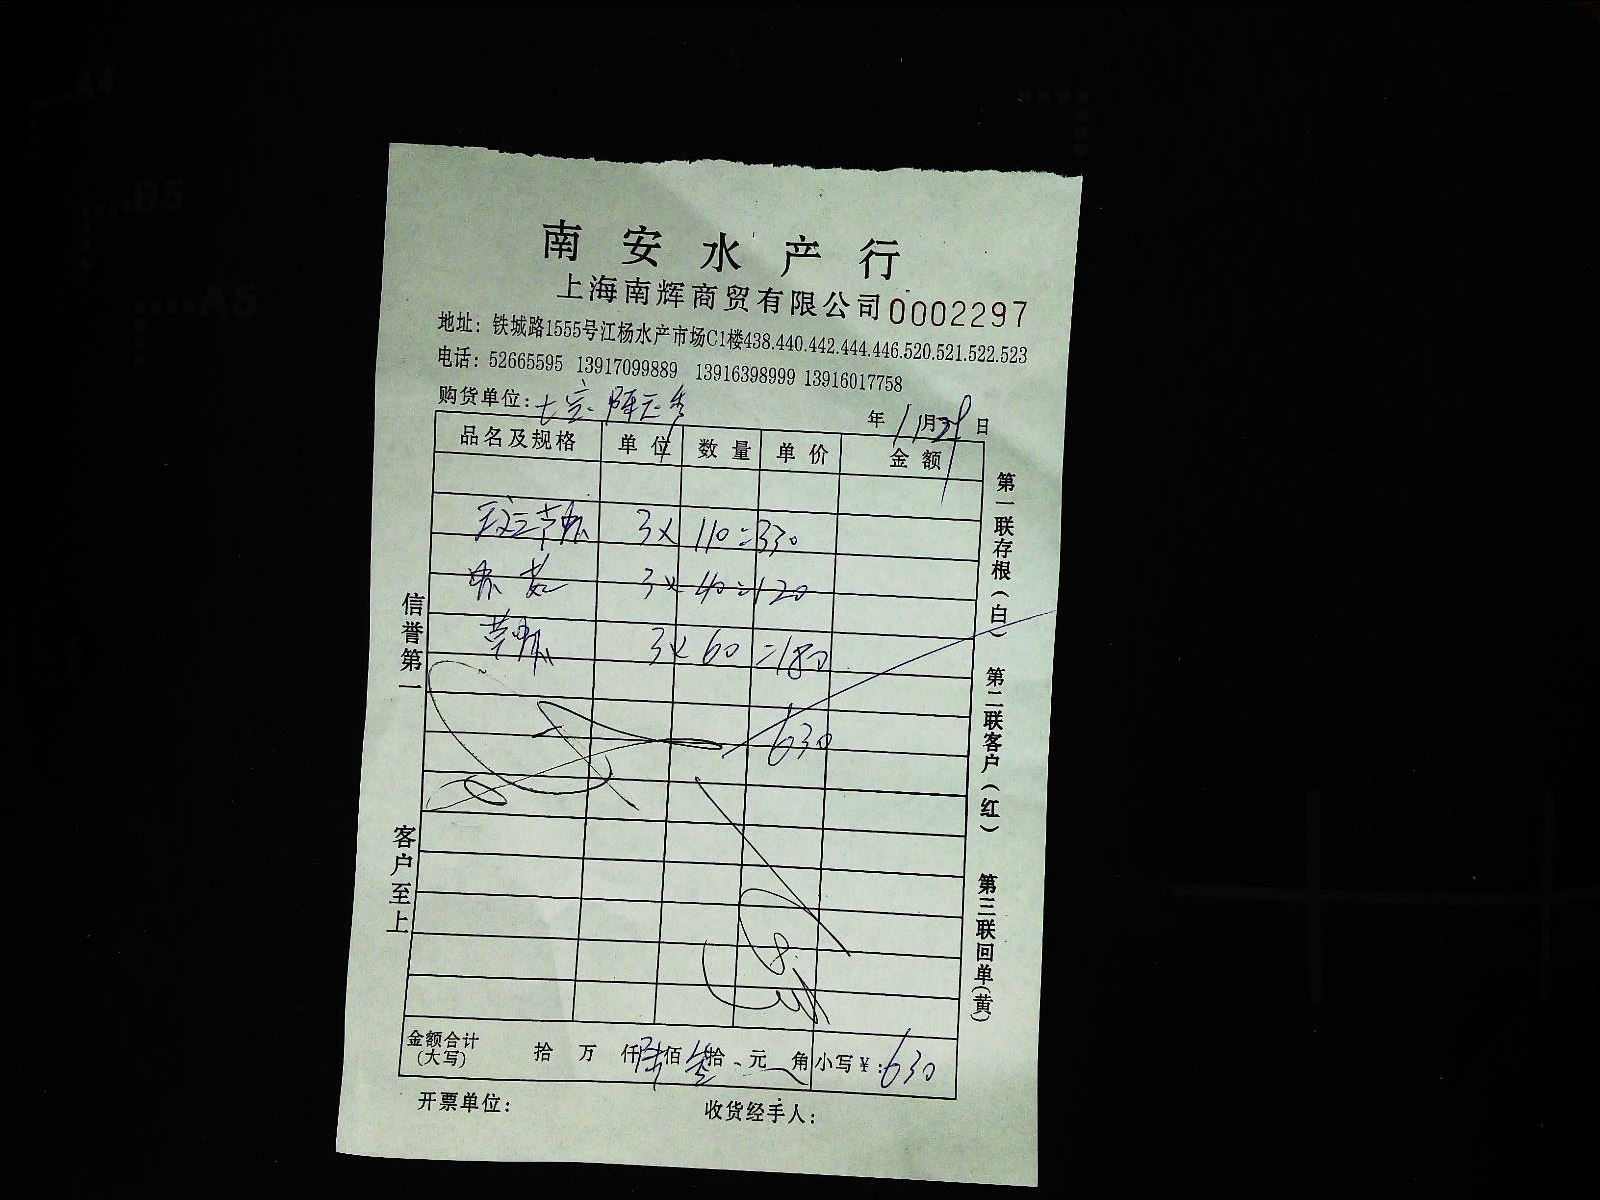 南安水产行
上海南辉商贸有限公司 0002297
地址：铁城路1555号江杨水产市场C1楼438.440.442.444.446.520.521.522.523
电话：52665595 13917099889 13916398999 13916017758
购货单位：
年 11月 日
品名及规格 单位 数量 单价 金额
3× 110=330
3× 40=120
3× 60=180
630
金额合计（大写） 拾 万 仟 陆佰 叁拾 元 角 小写￥：630
开票单位： 收货经手人：
信誉第一 客户至上
第一联存根（白） 第二联客户（红） 第三联回单（黄）
A4
B5
A5